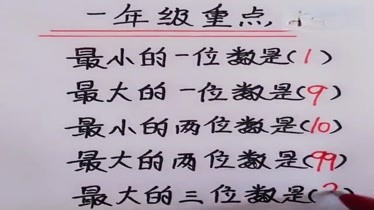 一年级重点
最小的一位数是(1)
最大的一位数是(9)
最小的两位数是(10)
最大的两位数是(99)
最大的三位数是(